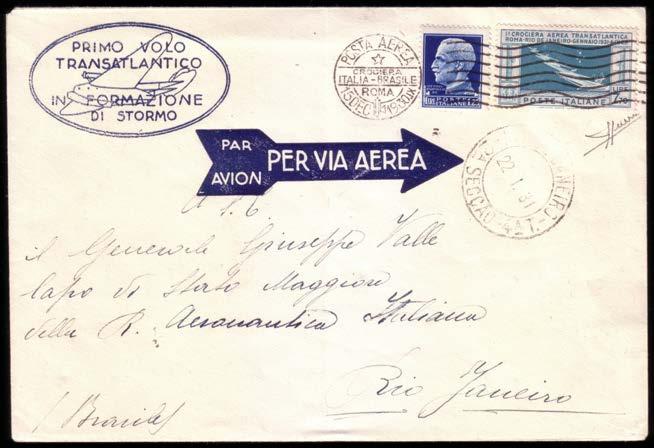 PRIMO VOLO
TRANSATLANTICO
IN FORMAZIONE
DI STORMO
POSTA AEREA
CROCIERA
ITALIA-BRASILE
ROMA
15 DEC 1930 IX
POSTE ITALIANE
Iª CROCIERA AEREA TRANSATLANTICA
ROMA-RIO DE JANEIRO-GENNAIO 1931
LIRE
7,70
POSTE ITALIANE
PAR
AVION
PER VIA AEREA
JANEIRO
22.1.31
4ª SECÇÃO
A S.E.
il Generale Giuseppe Valle
Capo di Stato Maggiore
della R. Aeronautica Italiana
Rio Janeiro
(Brasile)